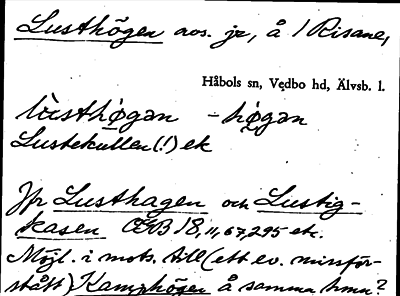 Lusthögen avs. jr, å 1 Risane,
Håbols sn, Vedbo hd, Älvsb. l.
lùsthǿgan – hǿgan
Lustekullen (!) ek
Jfr Lusthagen och Lustig-
kasen OGB 18, 11, 67, 295 etc.
Möjl. i mots. till (ett ev. missför-
stått) Kamphögen å samma hmn?